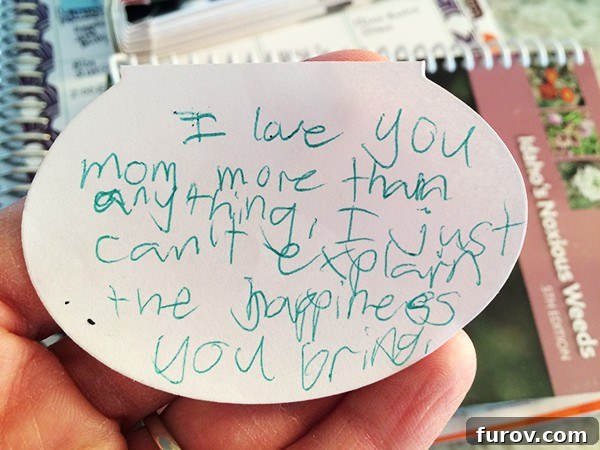 I love you
mom more than
anything, I just
can't explain
the happiness
you bring.
Idaho's Noxious Weeds
5TH EDITION
furov.com